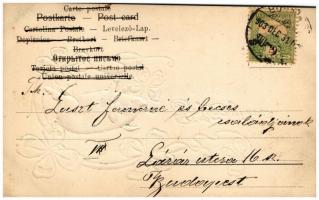 Carte postale
Postkarte — Post card
Cartolina Postale — Levelező-Lap.
Dopisnice — Brefkort — Briefkaart —
Brevkort
Открытое письмо
Tarjeta postal — Cartão postal
Union postale universelle.
és
családjának
III
Lázár utcza 16 sz.
Budapest